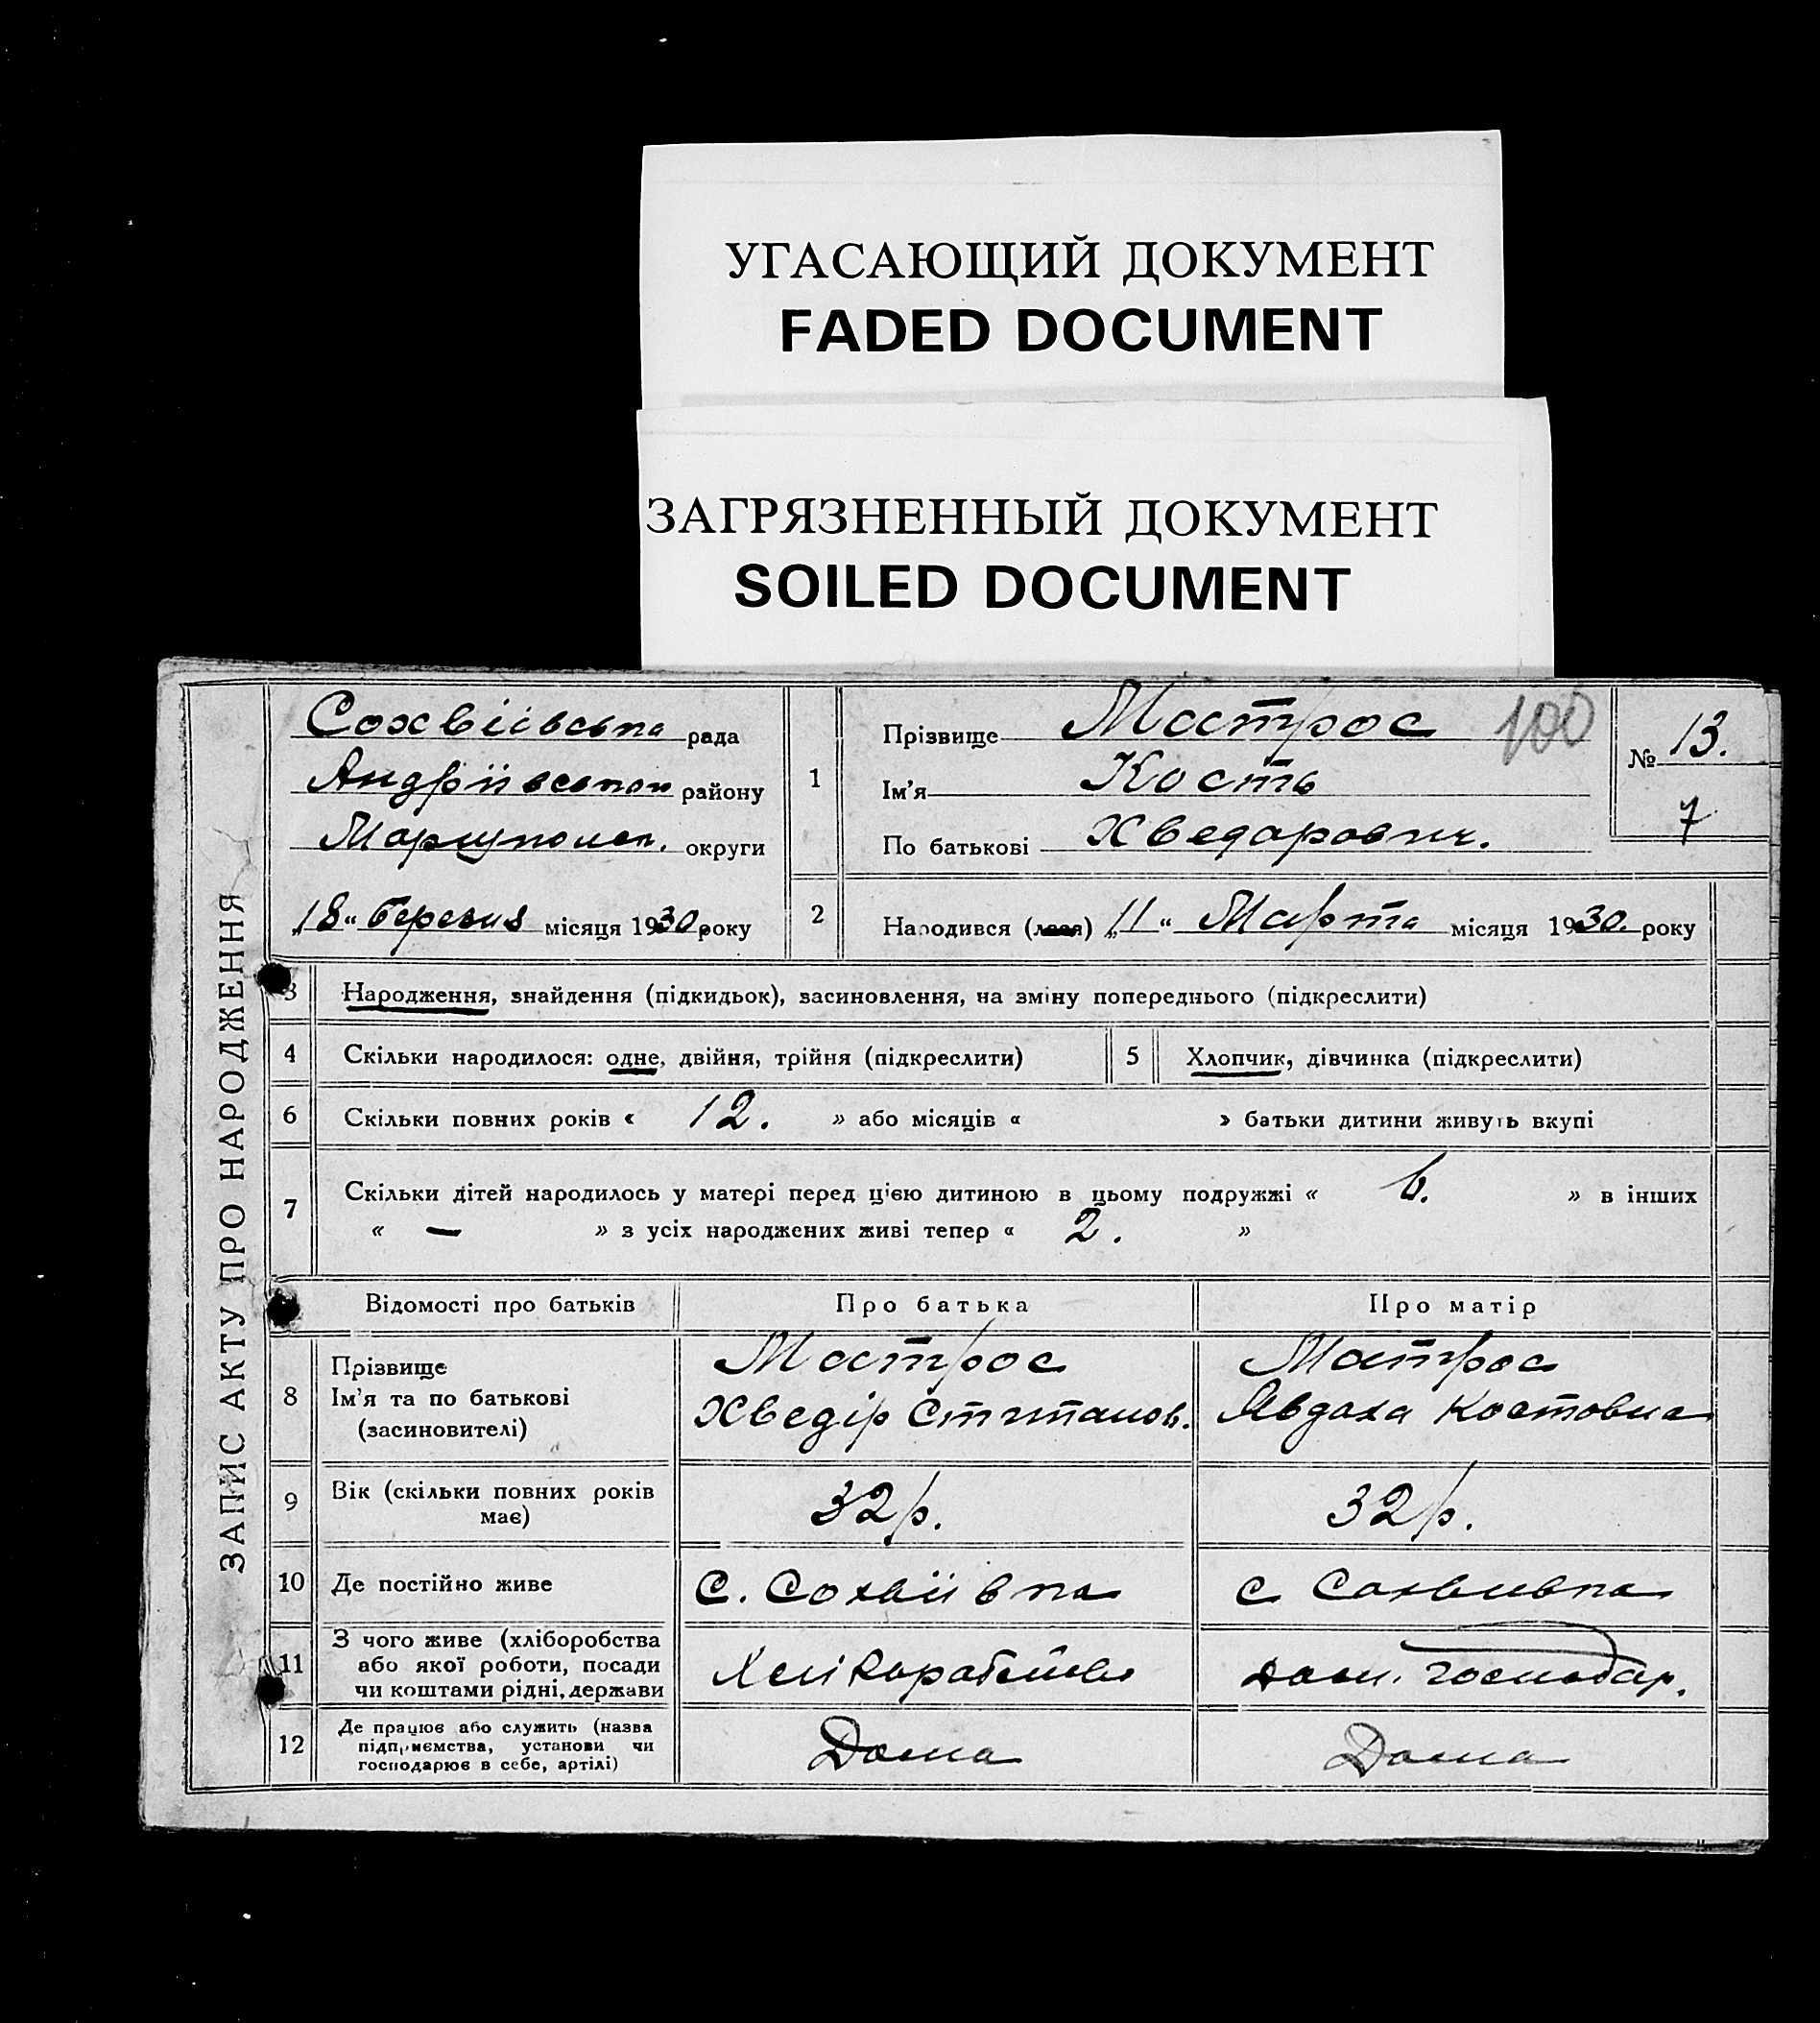 УГАСАЮЩИЙ ДОКУМЕНТ
FADED DOCUMENT
ЗАГРЯЗНЕННЫЙ ДОКУМЕНТ
SOILED DOCUMENT
ЗАПИС АКТУ ПРО НАРОДЖЕННЯ
Сохвіівська рада
Андріівськои району
Маріупольск. округи
„18“ березня місяця 1930 року
1
Прізвище Матрос
Ім'я Кость
По батькові Хведарович.
100
№ 13.
7
2
Народився (лася) „11“ Марта місяця 1930. року
3 Народження, знайдення (підкидьок), засиновлення, на зміну попереднього (підкреслити)
4 Скільки народилося: одне, двійня, трійня (підкреслити) 5 Хлопчик, дівчинка (підкреслити)
6 Скільки повних років « 12. » або місяців « » батьки дитини живуть вкупі
7 Скільки дітей народилось у матері перед цією дитиною в цьому подружжі « 6. » в інших
« — » з усіх народжених живі тепер « 2. »
Відомості про батьків Про батька Про матір
8 Прізвище Матрос Матрос
Ім'я та по батькові Хведір Явдоха Костовна
(засиновителі)
9 Вік (скільки повних років має) 32 р. 32 р.
10 Де постійно живе С. Сохвіівка с Сохвиівка
11 З чого живе (хліборобства
або якої роботи, посади
чи коштами рідні, держави дом. господар.
12 Де працює або служить (назва
підприємства, установи чи
господарює в себе, артілі) Дома Дома